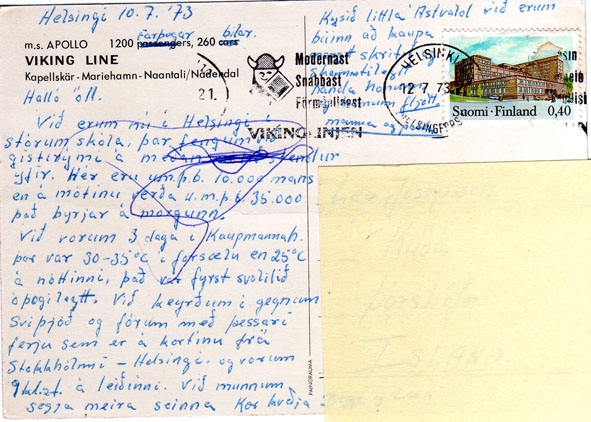 Helsingi 10.7. '73
Farþegar bílar.
m.s. APOLLO 1200 passengers, 260 cars
VIKING LINE
Kapellskär - Mariehamn - Naantali/Nådendal
Halló öll.
Við erum nú í Helsingi í
stórum skóla, þar fengum við
gistirými á meðan stendur
yfir. Hér eru u.m.þ.b. 10.000 manns
en á mótinu verða u.m.þ.b. 35.000
það byrjar á morgunn.
Við vorum 3 daga í Kaupmannah.
þar var 30-35°C í forsælu en 25°C
á nóttinni, það var fyrst svolítið
óþægilegt. Við keyrðum í gegnum
Svíþjóð og fórum með þessari
ferju sem er á kortinu frá
Stokkhólmi - Helsingi. og vorum
9 kl.st. á leiðinni. Við munnum
segja meira seinna
Kysið littla Ástvald við erum
búinn að kaupa
handa honum
mamma og pabbi
Modernast
Snabbast
Förmånligast
VIKING LINJEN
21.
HELSINKI
12 7 73
HELSINGFORS
Suomi·Finland 0,40
PAINORAUMA